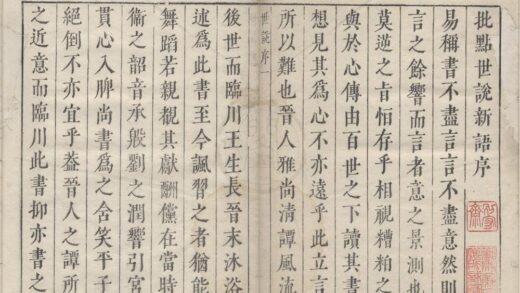 批點世說新語序
易稱書不盡言言不盡意然則
言之餘響而言者意之景測也
莫逆之旨恒存乎相視糟粕之
與於心傳由百世之下讀其書
想見其爲心不亦遠乎此立言
所以難也晉人雅尚清譚風流
世說序一
後世而臨川王生長晉末沐浴
述爲此書至今諷習之者猶能
舞蹈若親覩其獻酬儻在當時
衞之韶音承殷劉之潤響引宮
貫心入脾尚書爲之含笑平子
絕倒不亦宜乎葢晉人之譚所
之近意而臨川此書抑亦書之